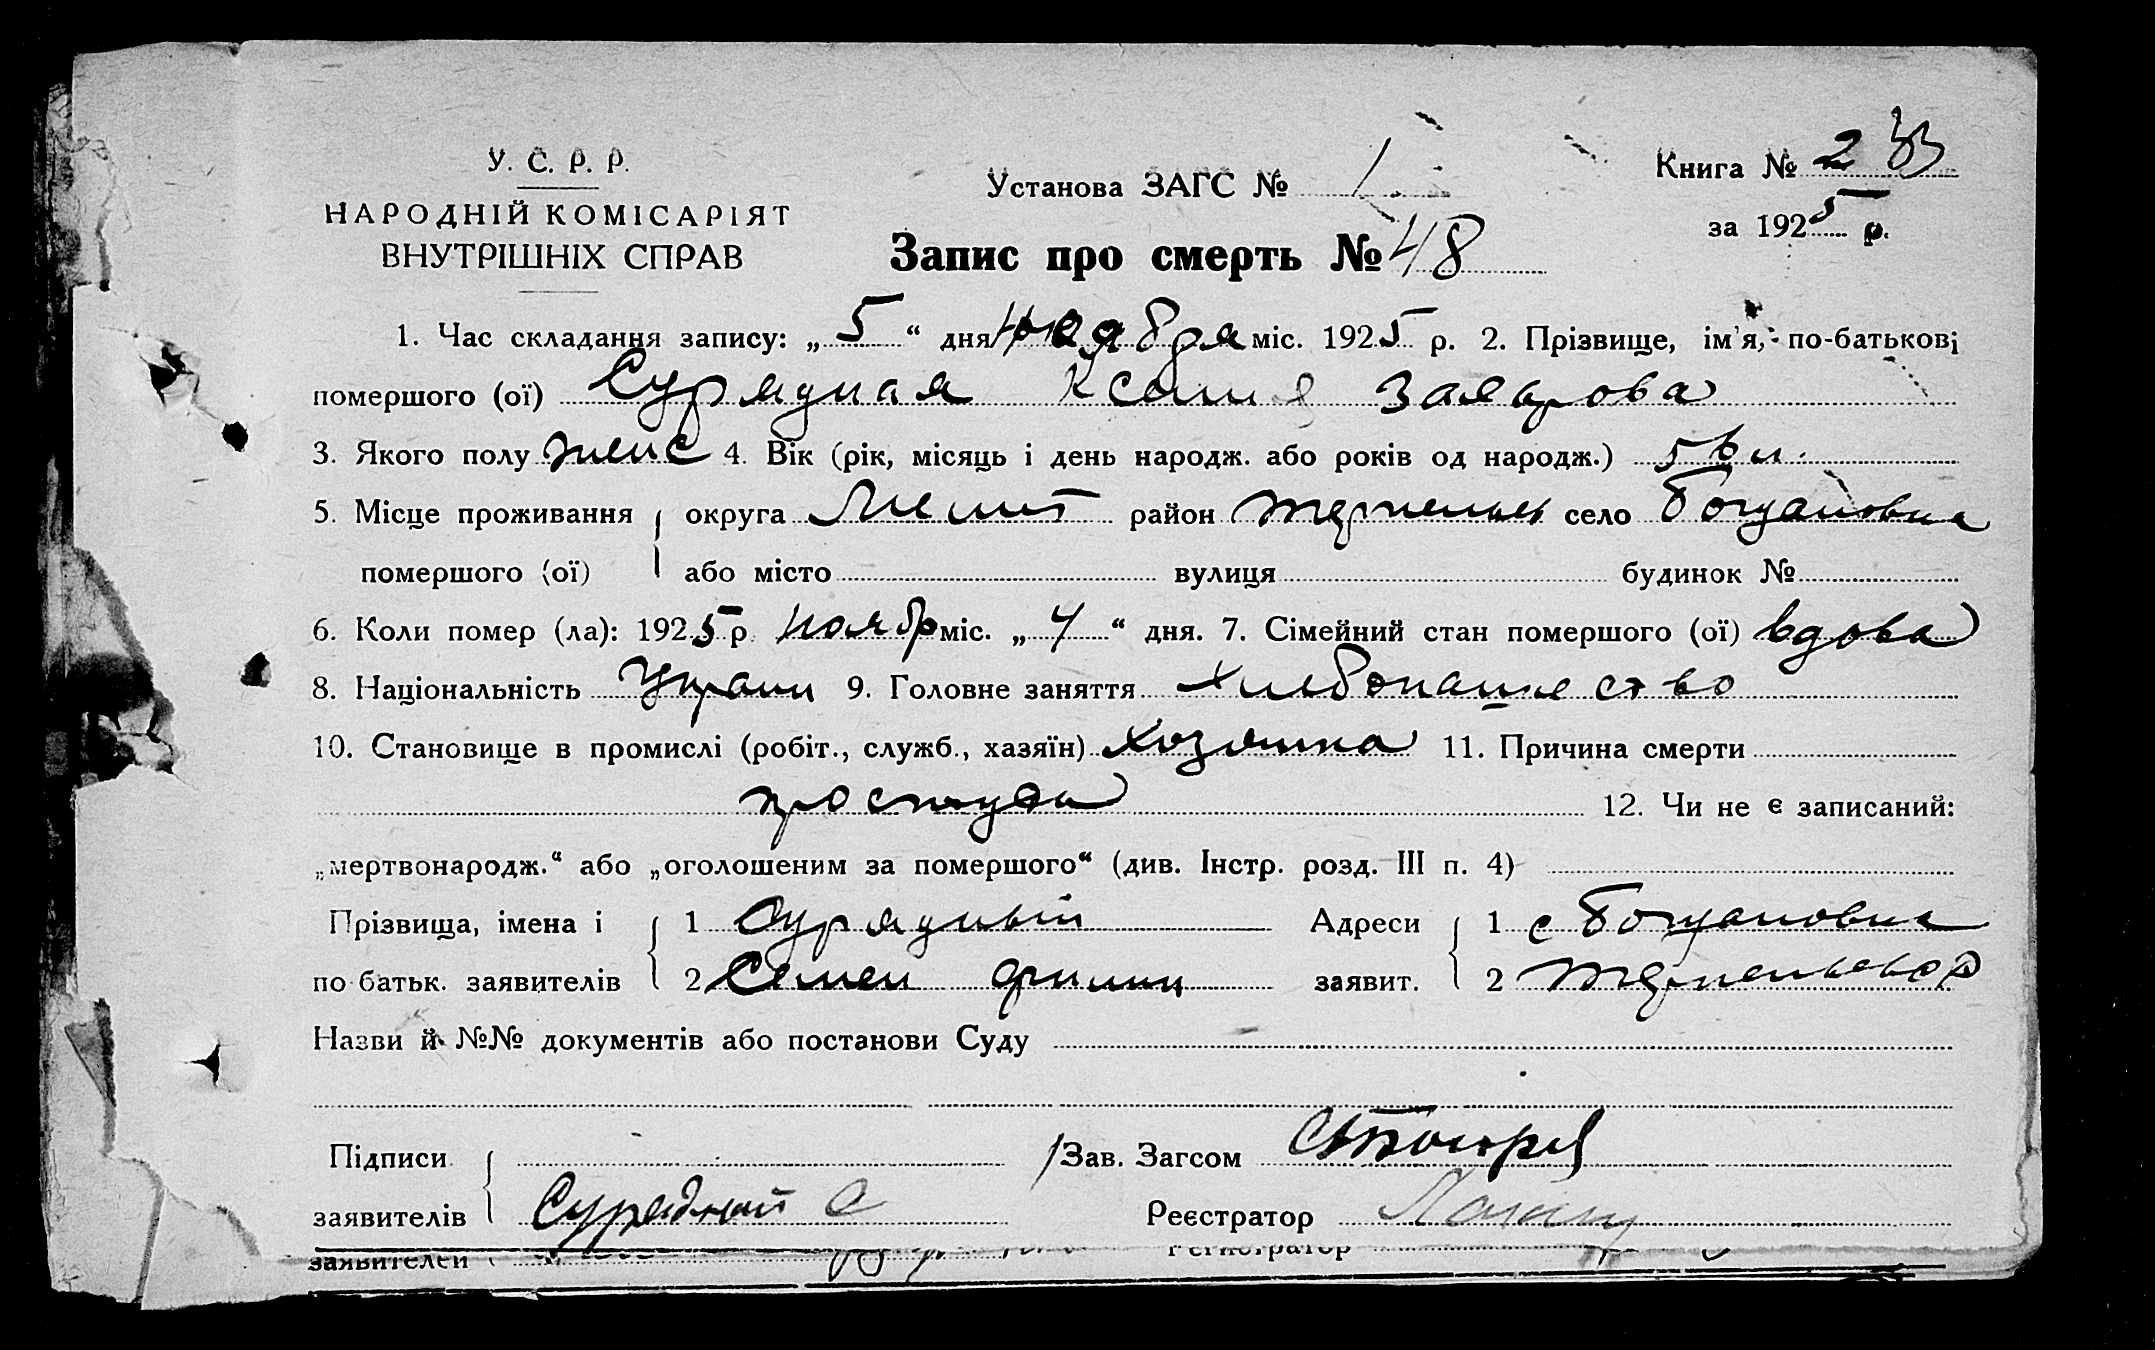 У. С. Р. Р.
НАРОДНІЙ КОМІСАРІЯТ
ВНУТРІШНІХ СПРАВ
Установа ЗАГС №
Книга № 2
за 1925 р.
Запис про смерть № 48
1. Час складання запису: „5“ дня ноября міс. 1925 р. 2. Прізвище, ім'я, по-батькові
помершого (ої) Сурядная Ксения Захарова
3. Якого полу женс 4. Вік (рік, місяць і день народж. або років од народж.) 56 л.
5. Місце проживання округа Мелит район село Богдановка
помершого (ої) або місто вулиця будинок №
6. Коли помер (ла): 1925 р. ноябр міс. „4“ дня. 7. Сімейний стан помершого (ої) вдова
8. Національність Украин 9. Головне заняття хлебопашество
10. Становище в промислі (робіт., служб., хазяїн) хозяинка 11. Причина смерти
простуда 12. Чи не є записаний:
„мертвонародж.“ або „оголошеним за помершого“ (див. Інстр. розд. III п. 4)
Прізвища, імена і 1 Сурядный Адреси 1 с Богдановка
по батьк. заявителів 2 Семен Филип заявит. 2
Назви й №№ документів або постанови Суду
Підписи Зав. Загсом
заявителів Сурядный С Реєстратор
заявителей Регистратор